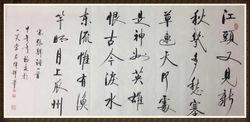 江頭又見新
秋幾多愁塞
草連天何處
是神州英雄
恨古今淚水
東流惟有漁
竿明月上瓜州
宋張輯詞一首